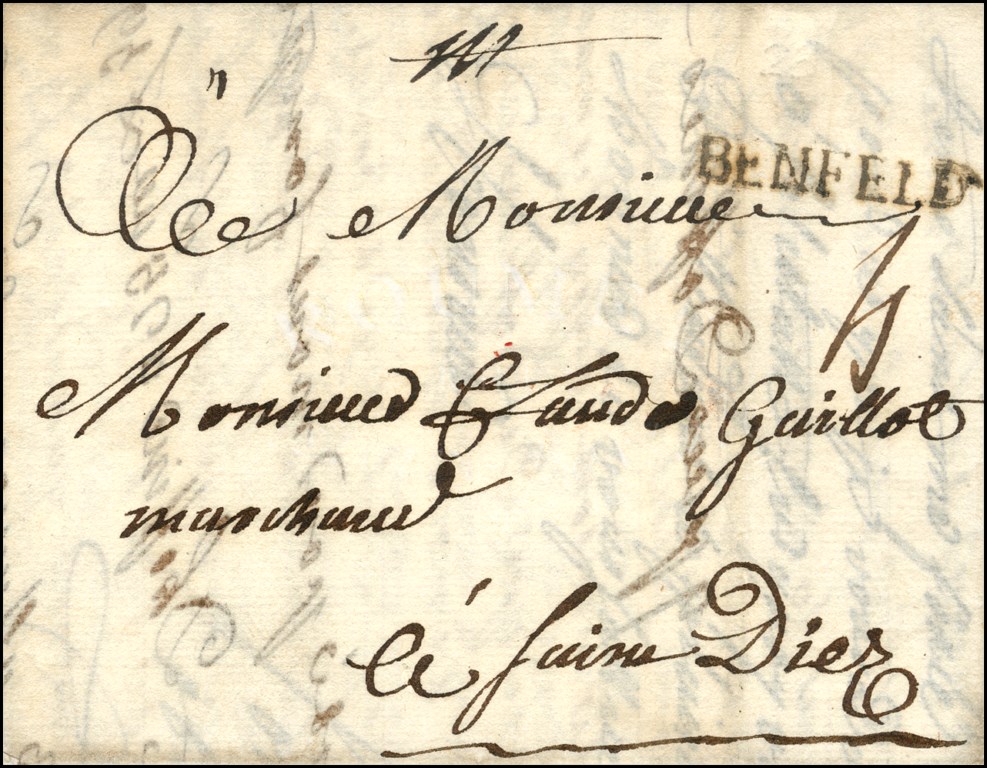 BENFELD
A Monsieur
4
Monsieur Claude Guillot
marchand
à saint Diez